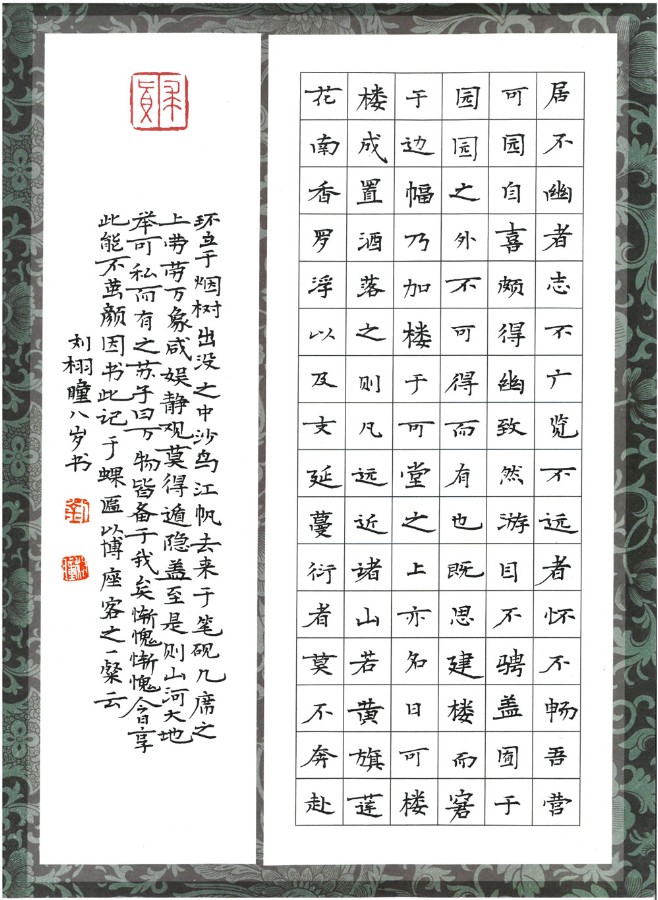 居不幽者志不广览不远者怀不畅吾营
可园自喜颇得幽致然游目不骋盖囿于
园园之外不可得而有也既思建楼而窘
于边幅乃加楼于可堂之上亦名曰可楼
楼成置酒落之则凡远近诸山若黄旗莲
花南香罗浮以及支延蔓衍者莫不奔赴
环立于烟树出没之中沙鸟江帆去来于笔砚几席之
上劳劳万象咸娱静观莫得遁隐盖至是则山河大地
举可私而有之苏子曰万物皆备于我矣惭愧惭愧今日享
此能不茁颜因书此记于螺匾以博座客之一粲云
刘栩瞳八岁书